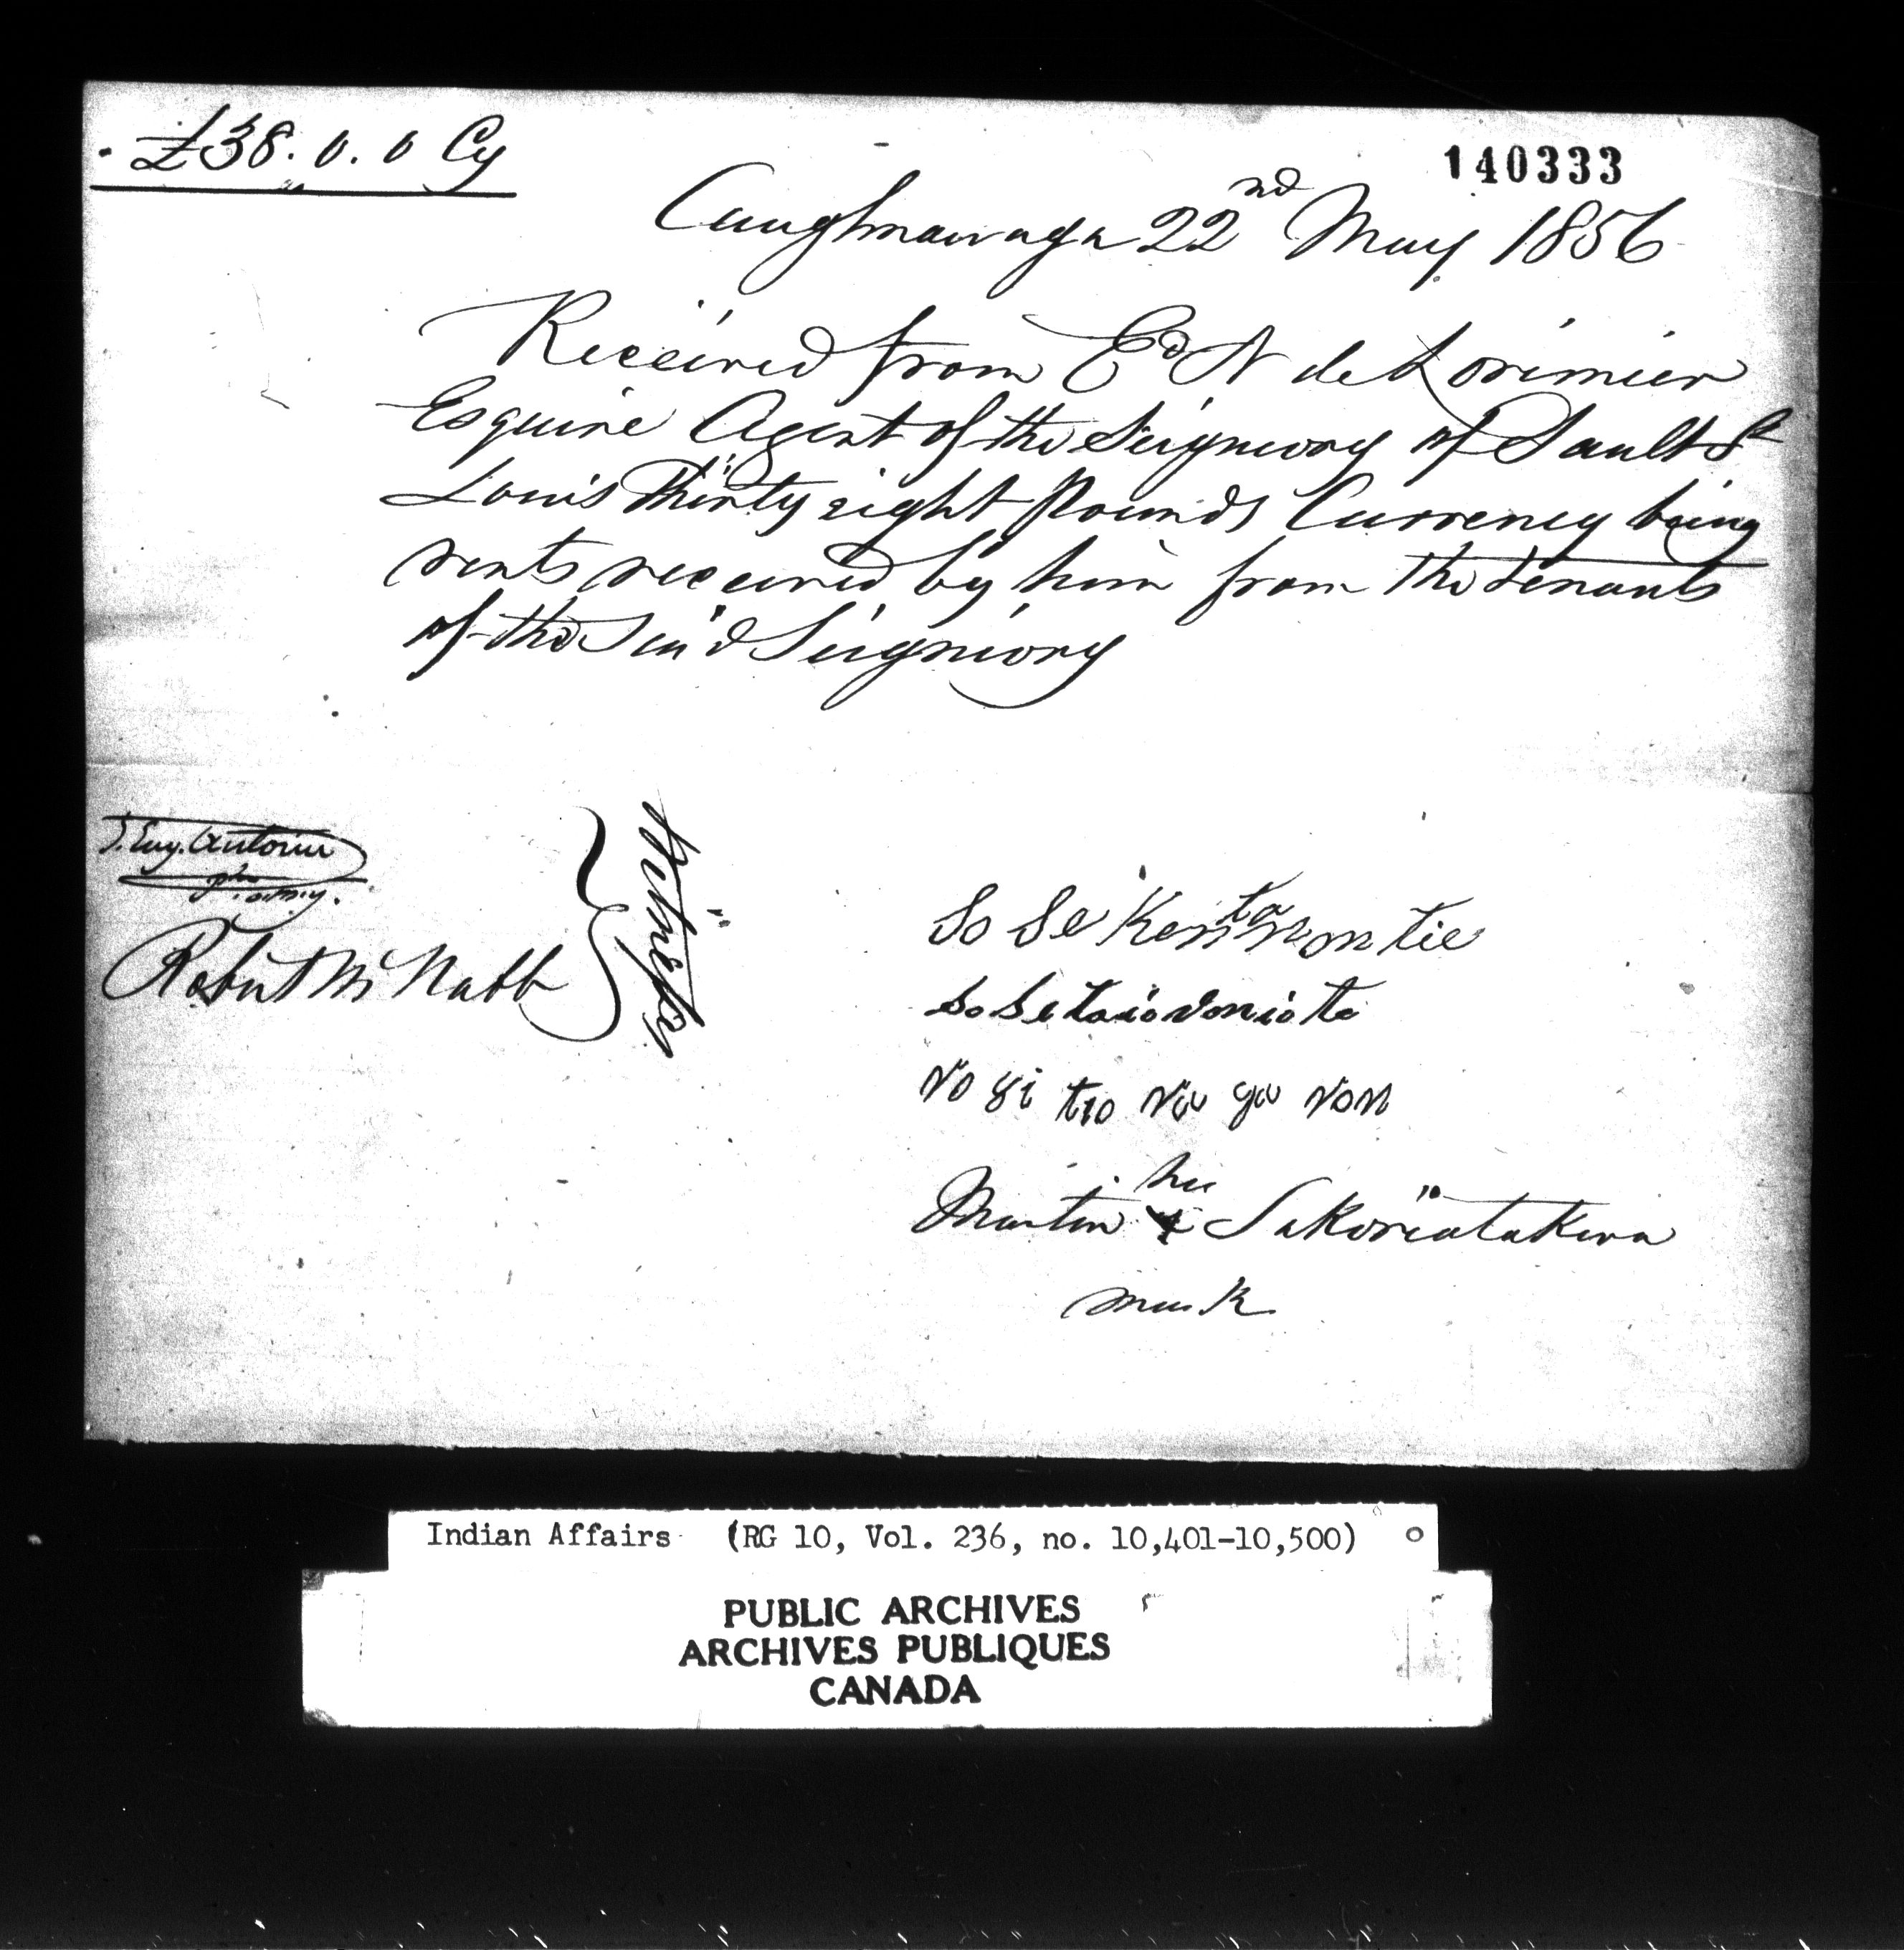 £38. 0. 0 Cy
140333
Caughnawaga 22nd May 1856
Received from Ed N de Lorimier
Esquire Agent of the Seigniory of Sault St
Louis Thirty eight Pounds Currency being
rents received by him from the tenants
of the said Seigniory
J. Eug. Antoine
Robert McNabb
Witnesses
So Se Kentarontie
So Se taioroniote
ro 8i tio
Martin his x Sakoriatakwa
mark
Indian Affairs (RG 10, Vol. 236, no. 10,401-10,500)
PUBLIC ARCHIVES
ARCHIVES PUBLIQUES
CANADA